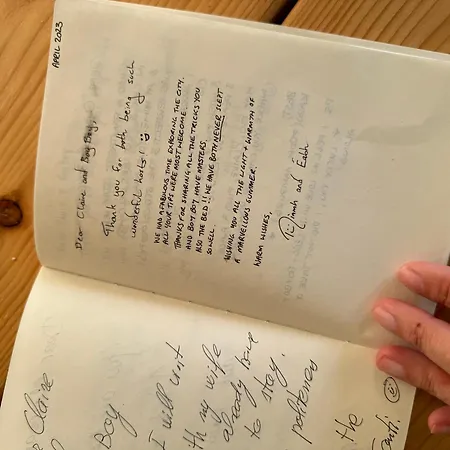 APRIL 2023
Dear Claire and Boy Boy,
Thank you for both being such
wonderful hosts!
WE HAD A FABULOUS TIME EXPLORING THE CITY.
ALL YOUR TIPS WERE MOST WELCOME.
THANKS FOR SHARING ALL THE TRICKS YOU
AND BOY BOY HAVE MASTERS.
ALSO THE BED!! WE HAVE BOTH NEVER SLEPT
SO WELL.
WISHING YOU ALL THE LIGHT + WARMTH OF
A MARVELLOUS SUMMER.
WARM WISHES,
and
Claire
Boy.
I will
my wife
already have
to stay.
politeness
the